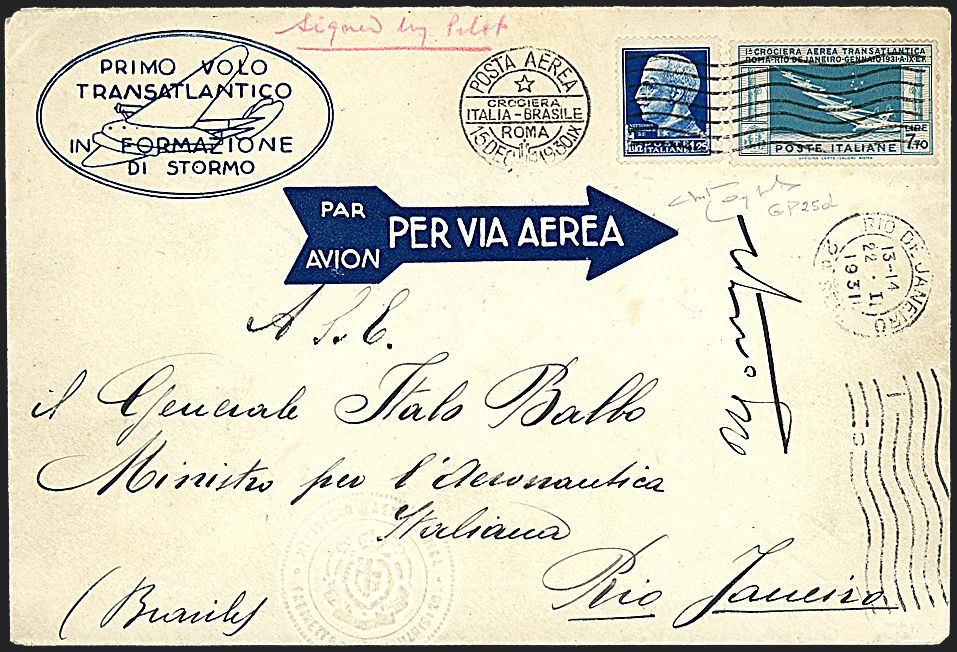 Signed by Pilot
PRIMO VOLO
TRANSATLANTICO
IN FORMAZIONE
DI STORMO
POSTA AEREA
CROCIERA
ITALIA-BRASILE
ROMA
15 DEC 1930 IX
1ª CROCIERA AEREA TRANSATLANTICA
ROMA-RIO DE JANEIRO-GENNAIO 1931-A.IX-E.F.
LIRE
7.70
POSTE ITALIANE
PAR
AVION
PER VIA AEREA
GP25d
RIO DE JANEIRO
13-14
22.I
1931
A S.E.
il Generale Italo Balbo
Ministro per l'Aeronautica
Italiana
Rio Janeiro
(Brasile)